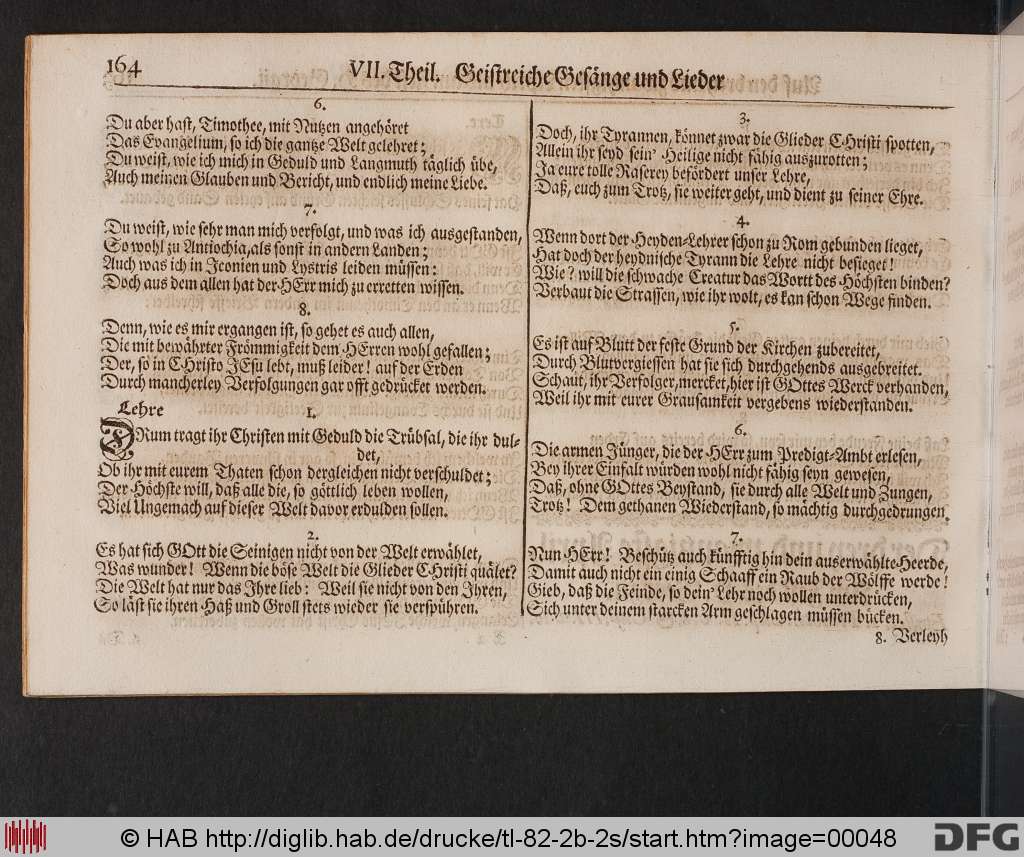 164
VII. Theil. Geistreiche Gesänge und Lieder
6.
Du aber hast, Timothee, mit Nutzen angehöret
Das Evangelium, so ich die gantze Welt gelehret;
Du weist, wie ich mich in Geduld und Langmuth täglich übe,
Auch meinen Glauben und Bericht, und endlich meine Liebe.
7.
Du weist, wie sehr man mich verfolgt, und was ich ausgestanden,
So wohl zu Antiochia, als sonst in andern Landen;
Auch was ich in Iconien und Lystris leiden müssen:
Doch aus dem allen hat der HErr mich zu erretten wissen.
8.
Denn, wie es mir ergangen ist, so gehet es auch allen,
Die mit bewährter Frömmigkeit dem HErren wohl gefallen;
Der, so in CHristo JEsu lebt, muß leider! auf der Erden
Durch mancherley Verfolgungen gar offt gedrücket werden.
Lehre
1.
DRum tragt ihr Christen mit Geduld die Trübsal, die ihr dul-
det,
Ob ihr mit eurem Thaten schon dergleichen nicht verschuldet;
Der Höchste will, daß alle die, so göttlich leben wollen,
Viel Ungemach auf dieser Welt davor erdulden sollen.
2.
Es hat sich GOtt die Seinigen nicht von der Welt erwählet,
Was wunder! Wenn die böse Welt die Glieder CHristi quälet?
Die Welt hat nur das Ihre lieb: Weil sie nicht von den Ihren,
So läst sie ihren Haß und Groll stets wieder sie verspühren.
3.
Doch, ihr Tyrannen, könnet zwar die Glieder CHristi spotten,
Allein ihr seyd sein' Heilige nicht fähig auszurotten;
Ja eure tolle Raserey befördert unser Lehre,
Daß, euch zum Trotz, sie weiter geht, und dient zu seiner Ehre.
4.
Wenn dort der Heyden-Lehrer schon zu Rom gebunden lieget,
Hat doch der heydnische Tyrann die Lehre nicht besieget!
Wie? will die schwache Creatur das Wortt des Höchsten binden?
Verbaut die Strassen, wie ihr wolt, es kan schon Wege finden.
5.
Es ist auf Blutt der feste Grund der Kirchen zubereitet,
Durch Blutvergiessen hat sie sich durchgehends ausgebreitet.
Schaut, ihr Verfolger, mercket, hier ist GOttes Werck verhanden,
Weil ihr mit eurer Grausamkeit vergebens wiederstanden.
6.
Die armen Jünger, die der HErr zum Predigt-Ambt erlesen,
Bey ihrer Einfalt würden wohl nicht fähig seyn gewesen,
Daß, ohne GOttes Beystand, sie durch alle Welt und Zungen,
Trotz! Dem gethanen Wiederstand, so mächtig durchgedrungen.
7.
Nun HErr! Beschütz auch künfftig hin dein auserwählte Heerde,
Damit auch nicht ein einig Schaaff ein Raub der Wölffe werde!
Gieb, daß die Feinde, so dein' Lehr noch wollen unterdrücken,
Sich unter deinem starcken Arm geschlagen müssen bücken.
8. Verleyh
© HAB http://diglib.hab.de/drucke/tl-82-2b-2s/start.htm?image=00048
DFG